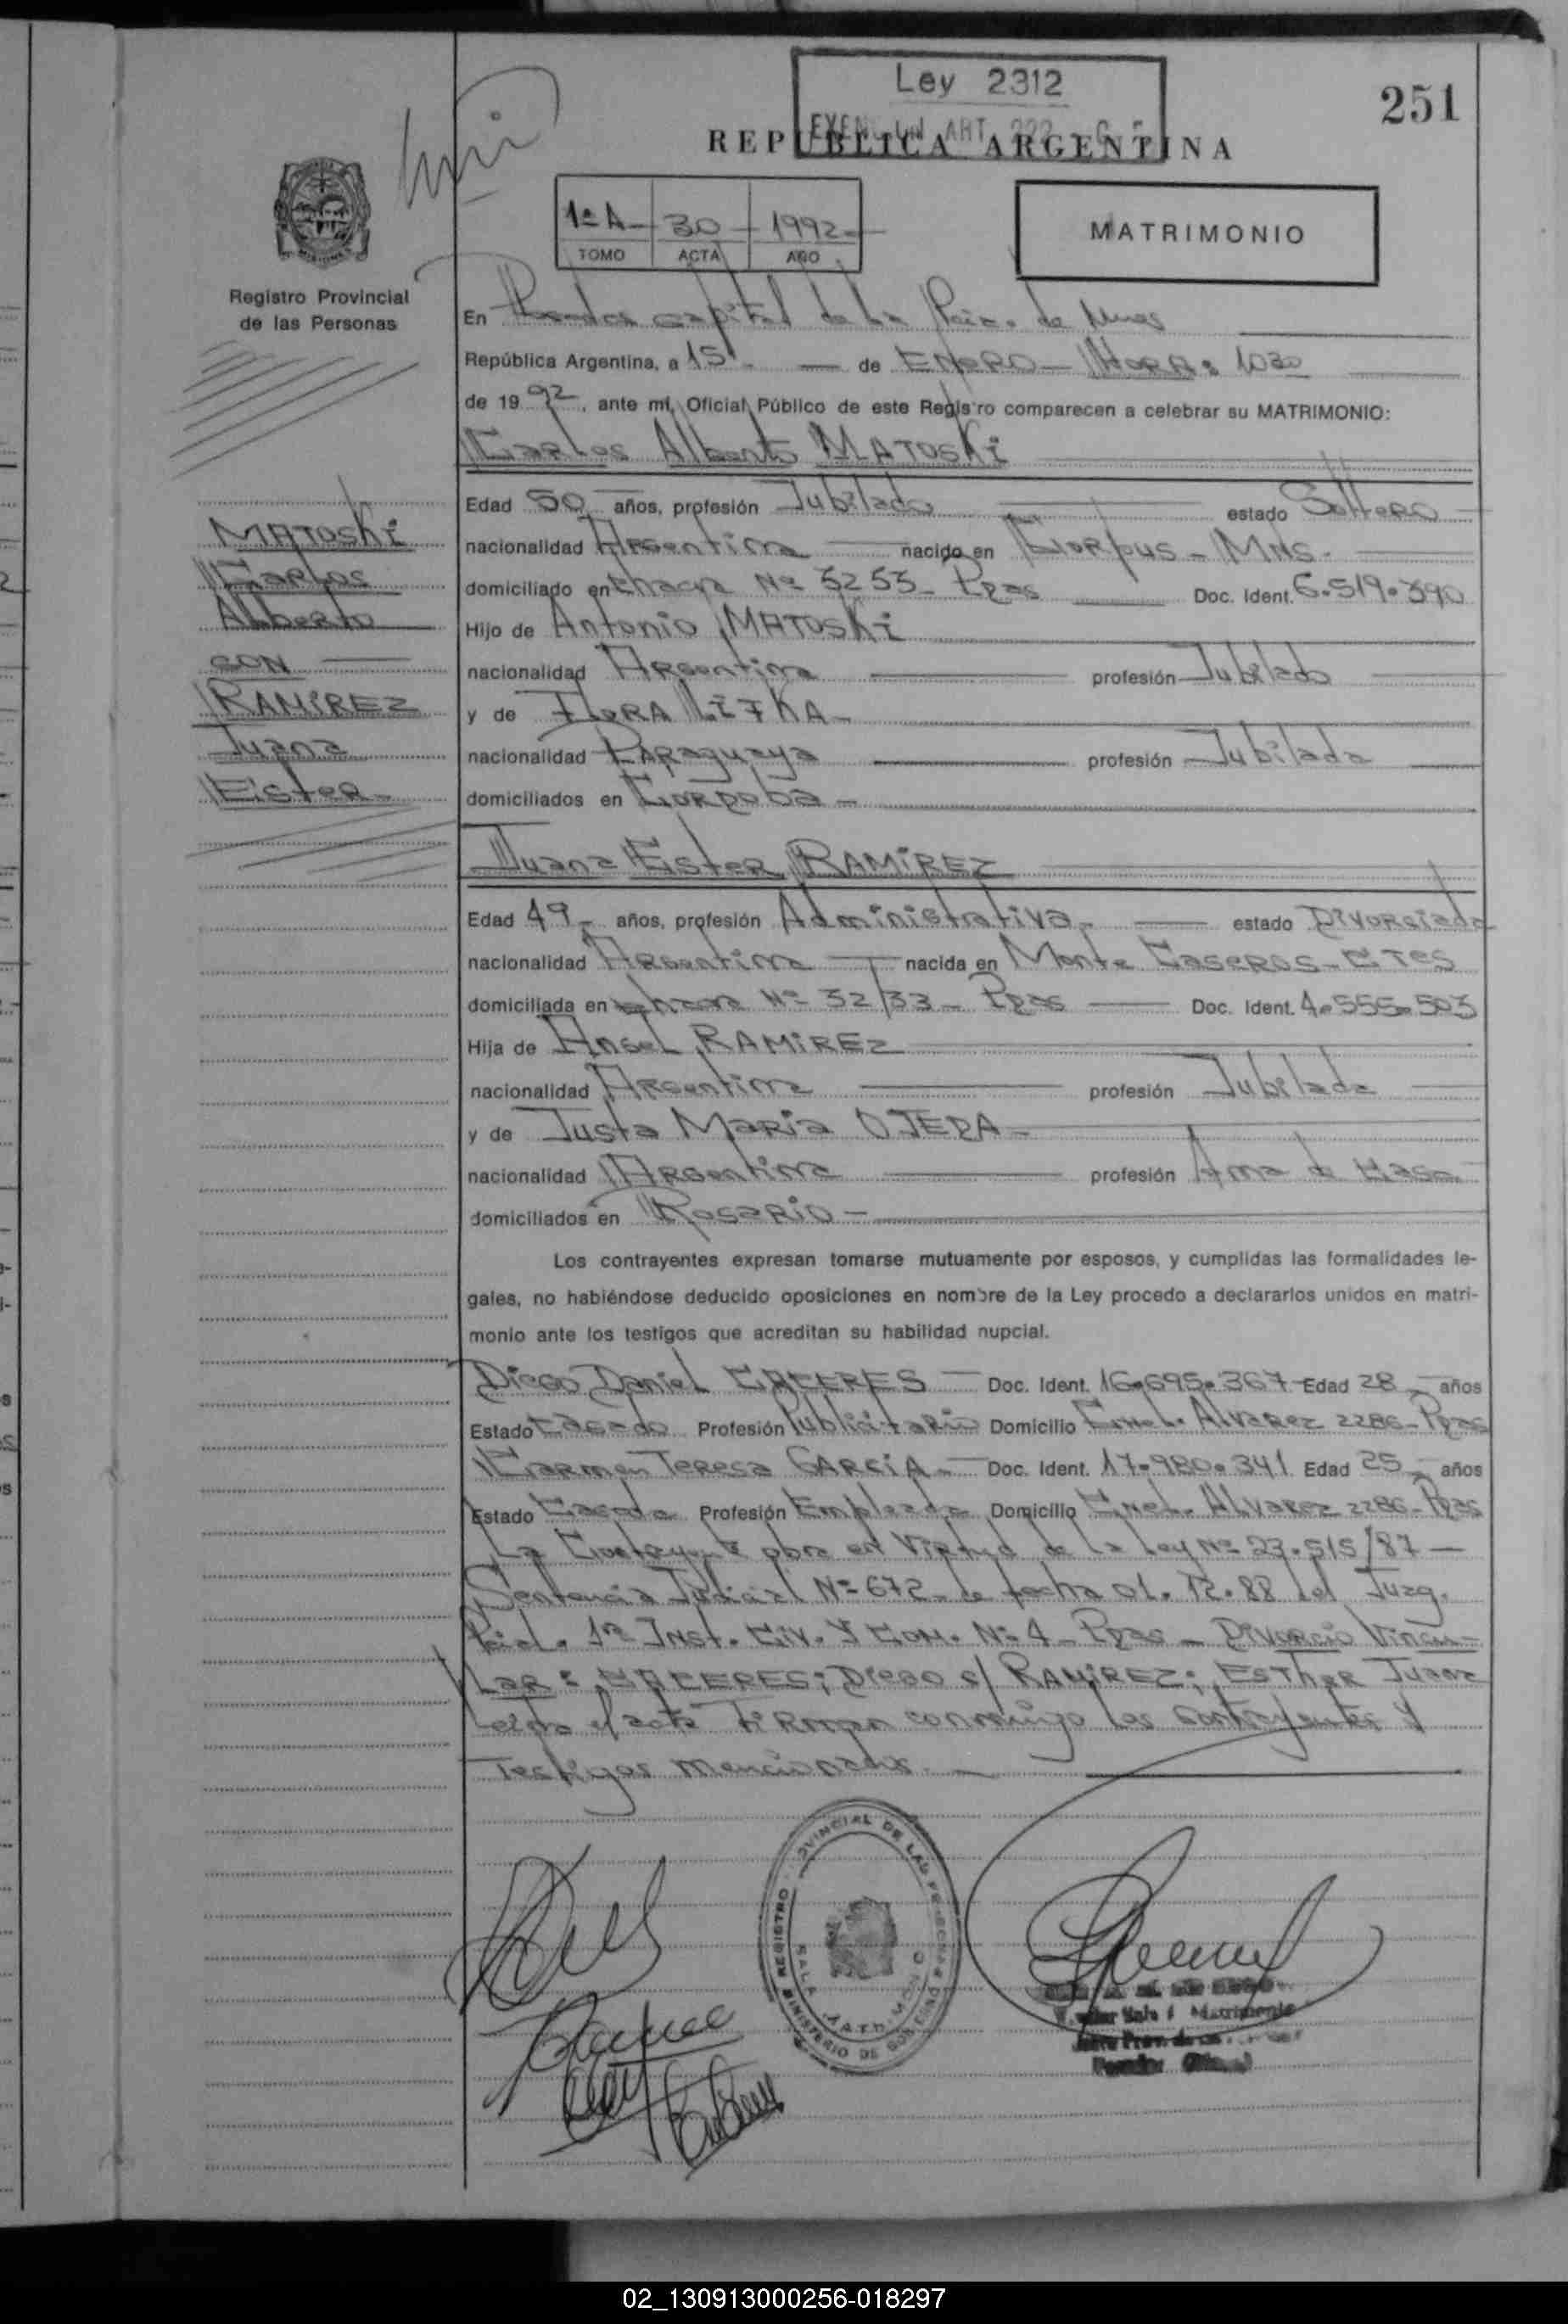 Ley 2312
251
REPUBLICA ARGENTINA
1ª A - 30 - 1992 -
TOMO ACTA AÑO
MATRIMONIO
Registro Provincial
de las Personas
En Posadas capital de la Pcia. de Mnes
República Argentina, a 15 - de ENERO - HORA: 1030
de 1992, ante mí, Oficial Público de este Registro comparecen a celebrar su MATRIMONIO:
Carlos Alberto MATOSKI
Edad 50 años, profesión Jubilado estado Soltero
nacionalidad Argentina nacido en Corpus - Mns.
domiciliado en chacra Nº 3253 - Pdas Doc. Ident. 6.519.390
Hijo de Antonio MATOSKI
nacionalidad Argentina profesión Jubilado
y de FLORA LIFKA -
nacionalidad Paraguaya profesión Jubilada
domiciliados en CORDOBA -
MATOSKI
Carlos
Alberto
CON
RAMIREZ
Juana
Ester -
Juana Ester RAMIREZ
Edad 49 - años, profesión Administrativa - estado Divorciada
nacionalidad Argentina nacida en Monte Caseros - CTES
domiciliada en chacra Nº 32/33 - Pdas Doc. Ident. 4.555.503
Hija de Angel RAMIREZ
nacionalidad Argentina profesión Jubilada
y de Justa Maria OJEDA -
nacionalidad Argentina profesión Ama de Casa
domiciliados en Rosario -
Los contrayentes expresan tomarse mutuamente por esposos, y cumplidas las formalidades le-
gales, no habiéndose deducido oposiciones en nombre de la Ley procedo a declararlos unidos en matri-
monio ante los testigos que acreditan su habilidad nupcial.
Diego Daniel CACERES - Doc. Ident. 16.695.367 Edad 28 - años
Estado Casado Profesión Publicitario Domicilio Cnel. Alvarez 2286 - Pdas
Carmen Teresa GARCIA - Doc. Ident. 17.980.341 Edad 25 - años
Estado Casada Profesión Empleada Domicilio Cnel. Alvarez 2286 - Pdas
La Contrayente obra en Virtud de la Ley Nº 23.515/87 -
Sentencia Judicial Nº 672 - de fecha 01.12.88 del Juzg.
1ª Inst. Civ. Y Com. Nº 4 - Pdas - Divorcio Vincu-
Lar: CACERES; Diego c/ RAMIREZ; Esther Juana
Leida el acta Firman conmigo los contrayentes y
Testigos mencionados. -
REGISTRO PROVINCIAL DE LAS PERSONAS
MINISTERIO DE GOBIERNO
SALA MATRIMONIO
02_130913000256-018297